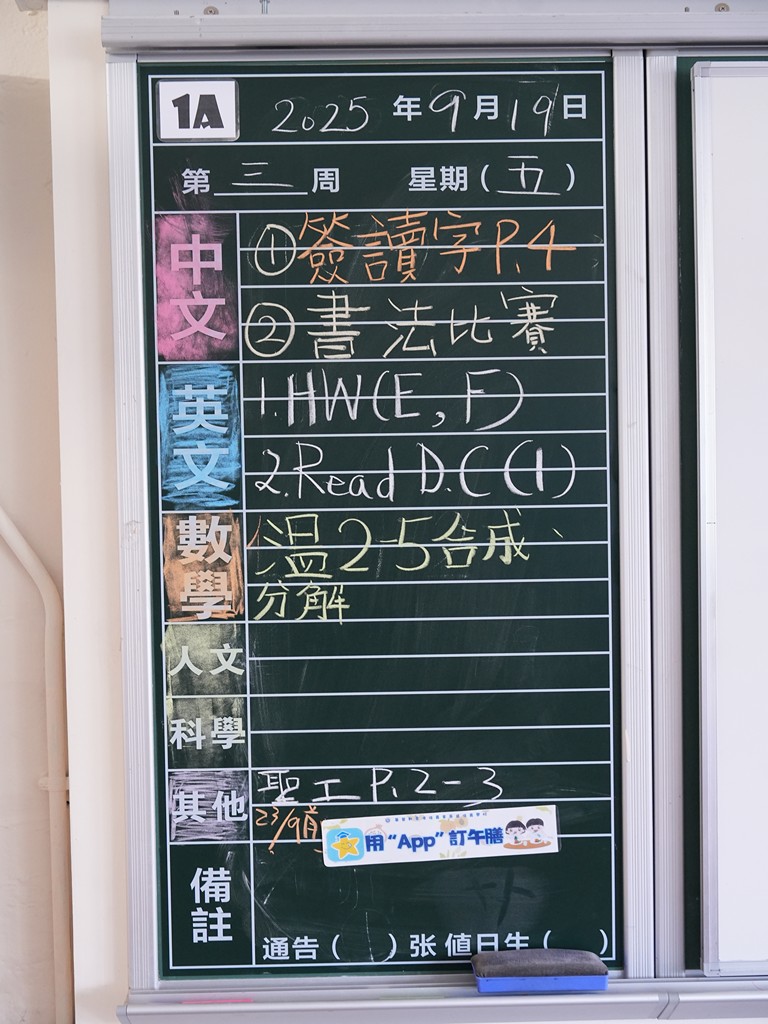 1A 2025 年 9 月 19 日
第 三 周 星期 ( 五 )
中文 ① 簽讀字 P.4
② 書法比賽
英文 1. HW (E, F)
2. Read D.C (1)
數學 溫 2-5 合成、
分解
人文
科學
其他 聖工 P.2-3
23/9前
用 “App” 訂午膳
備註
通告 ( ) 张 值日生 ( )